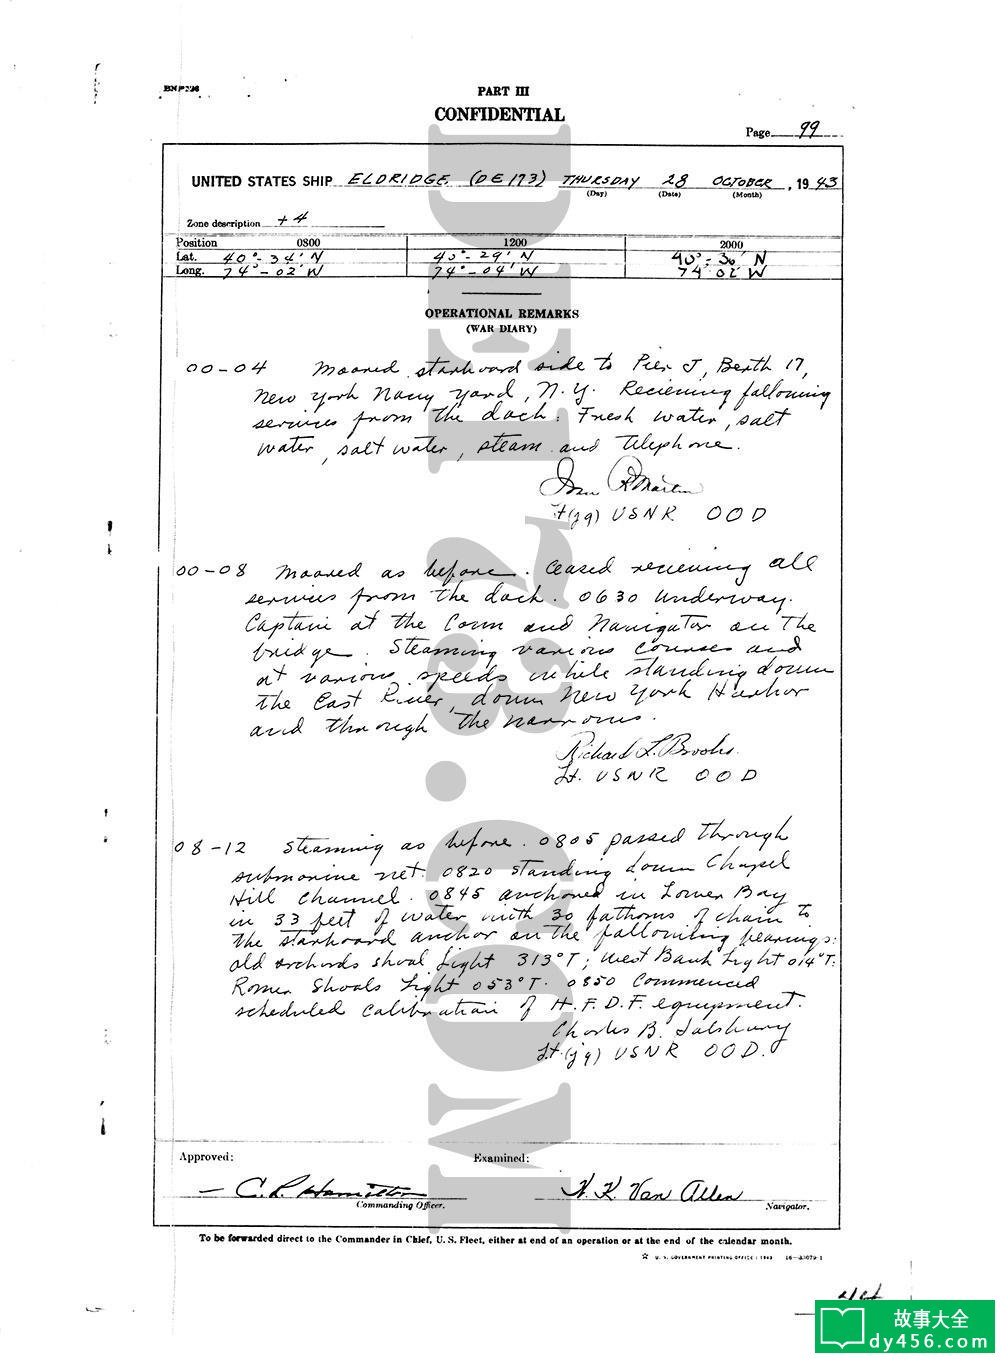 BNP226
PART III
CONFIDENTIAL
Page 99
UNITED STATES SHIP ELDRIDGE (DE173) THURSDAY 28 OCTOBER, 1943
(Day) (Date) (Month)
Zone description +4
Position 0800 1200 2000
Lat. 40°-34' N 40°-29' N 40°-30' N
Long. 74°-02' W 74°-04' W 74° 02' W
OPERATIONAL REMARKS
(WAR DIARY)
00-04 Moored starboard side to Pier J, Berth 17,
New York Navy Yard, N.Y. Recieving following
services from the dock: Fresh water, salt
water, salt water, steam and telephone.
R Martin
Lt(jg) USNR OOD
00-08 Moored as before. Ceased recieving all
services from the dock. 0630 Underway.
Captain at the Conn and Navigator on the
bridge. Steaming various courses and
at various speeds while standing down
the East River, down New York Harbor
and through the narrows.
Richard L. Brooks.
Lt. USNR OOD
08-12 Steaming as before. 0805 passed through
submarine net. 0820 standing down Chapel
Hill Channel. 0845 anchored in Lower Bay
in 33 feet of water with 30 fathoms of chain to
the starboard anchor on the following bearings:
old orchards shoal Light 313°T; West Bank Light 014°T:
Romer Shoals Light 053°T. 0850 Commenced
scheduled calibration of H.F.D.F. equipment.
Charles B. Salsbury
Lt.(jg) USNR OOD.
Approved: Examined:
C.R. Hamilton N. K. Van Allen
Commanding Officer. Navigator.
To be forwarded direct to the Commander in Chief, U. S. Fleet, either at end of an operation or at the end of the calendar month.
☆ U. S. GOVERNMENT PRINTING OFFICE : 1943 16-33079-1
故事大全
dy456.com